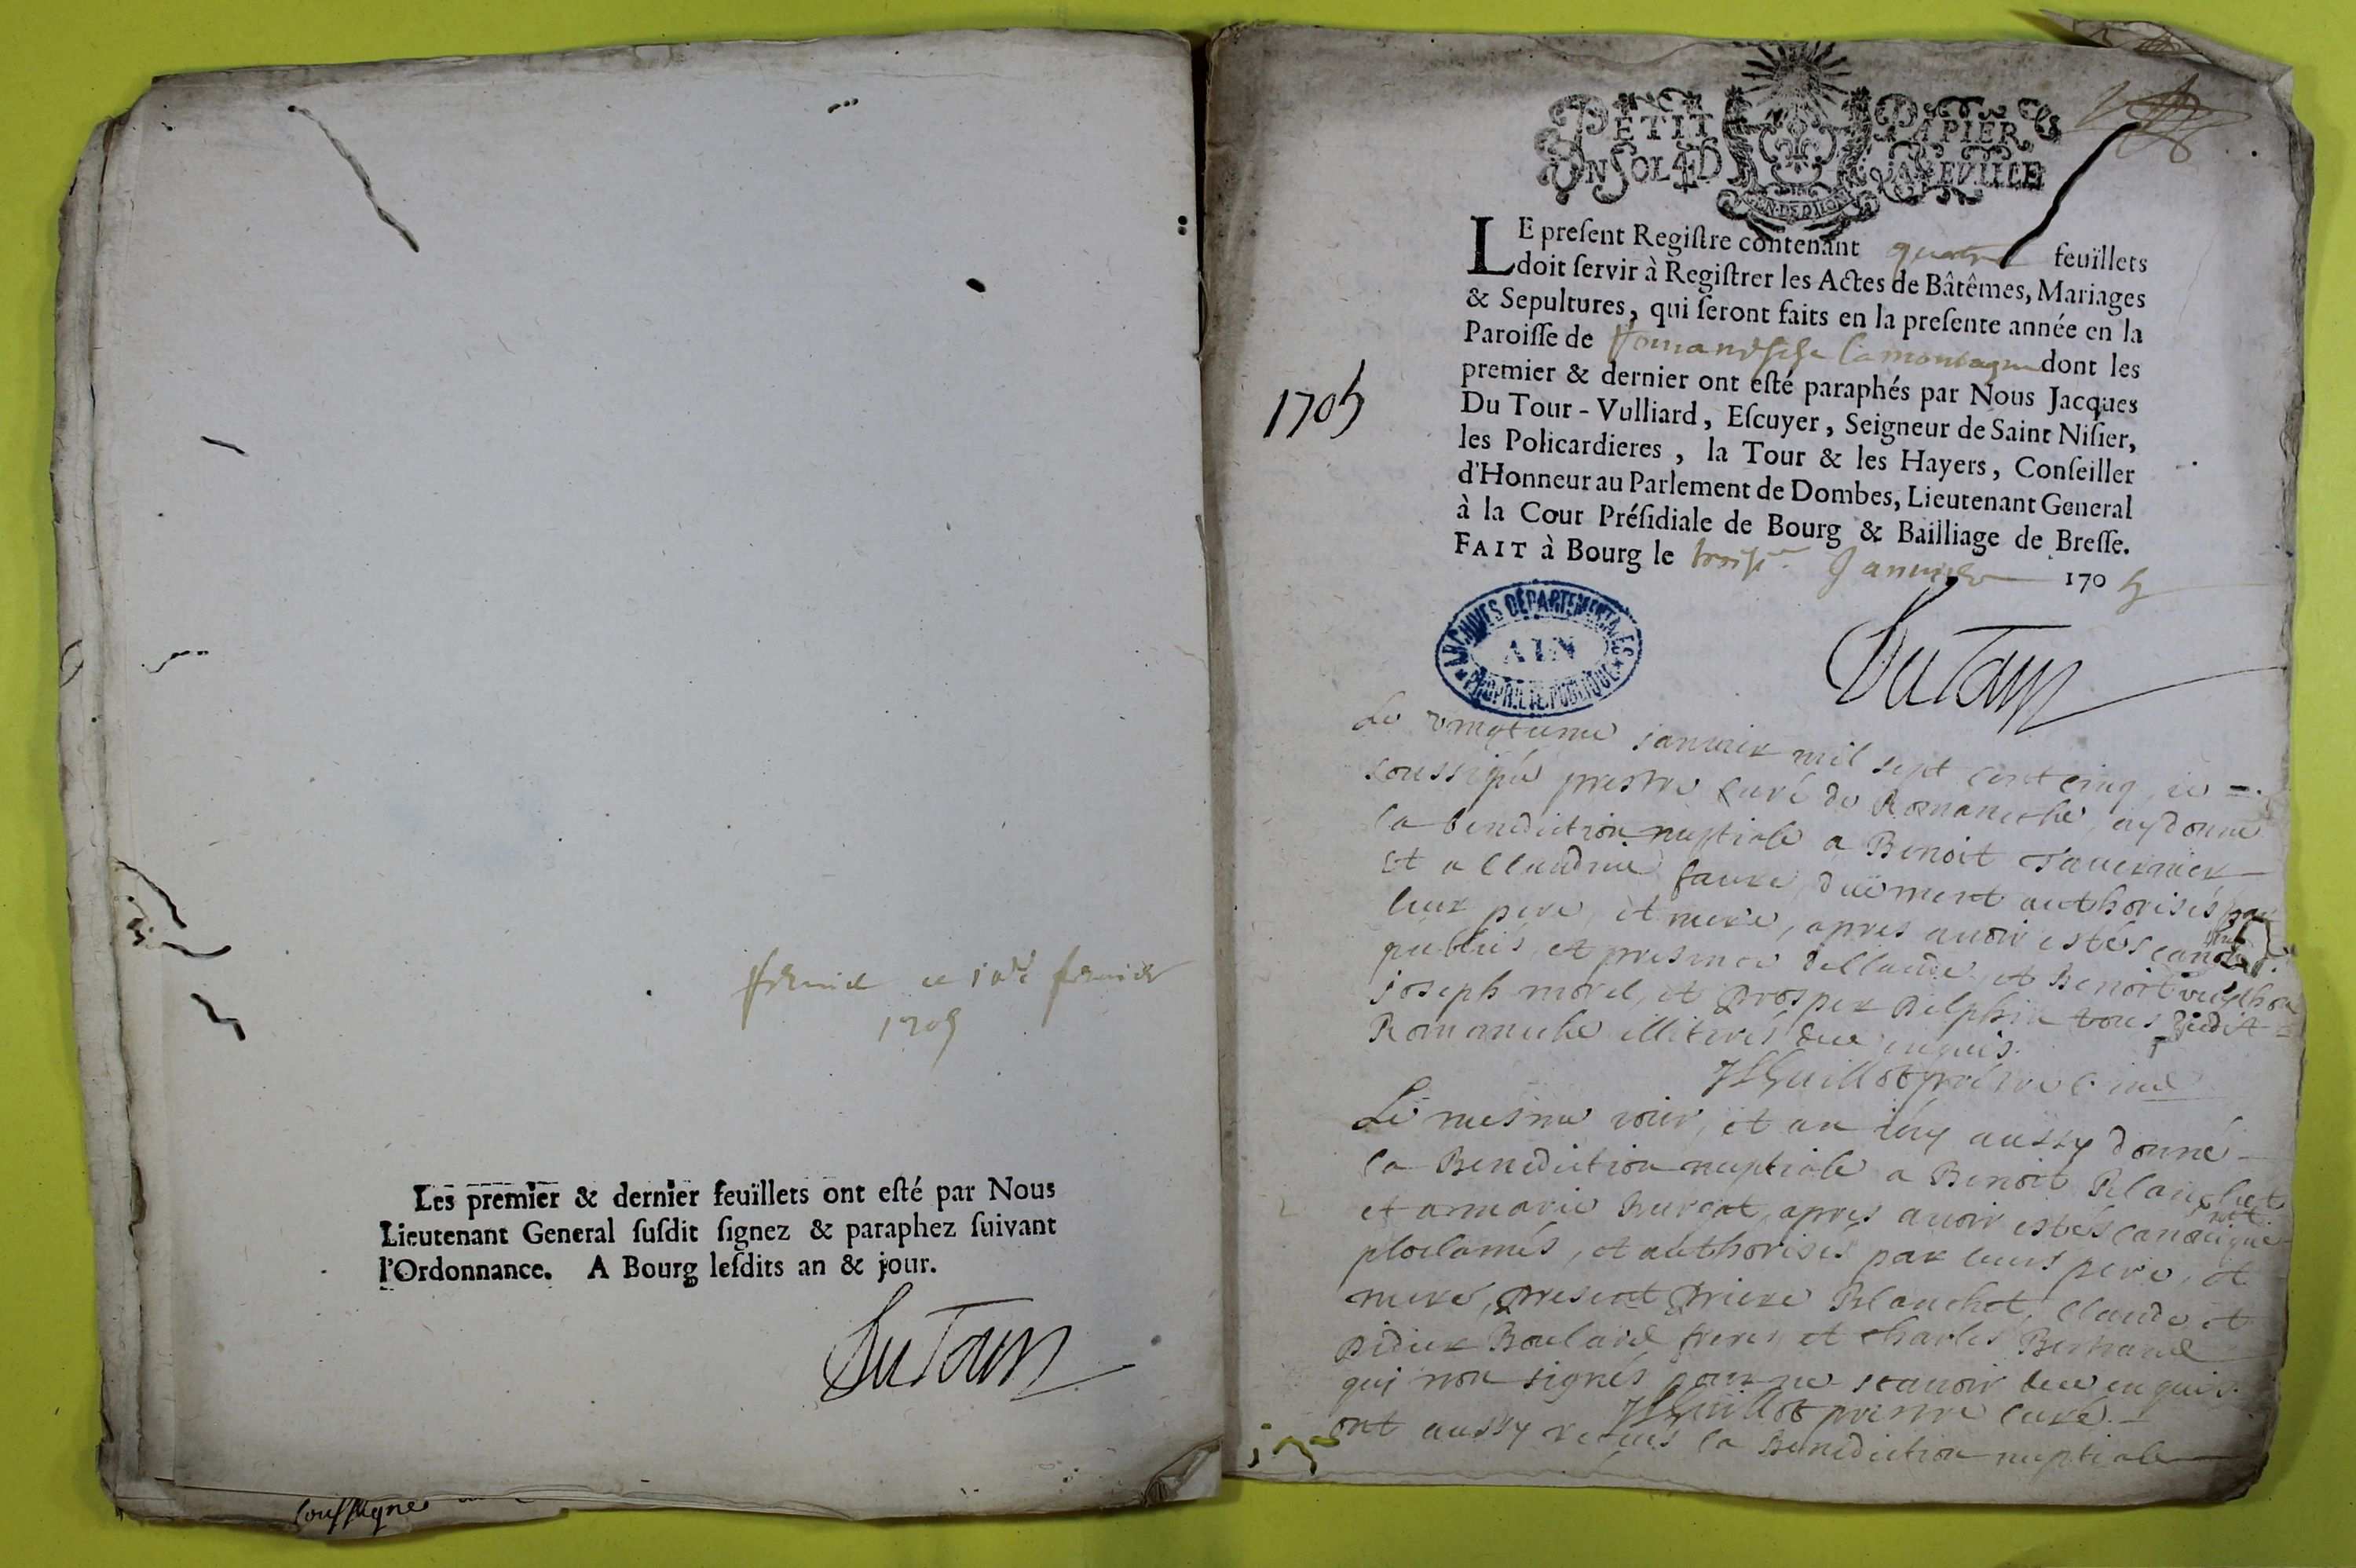 1705
Les premier & dernier feuïllets ont eſté par Nous
Lieutenant General ſuſdit ſignez & paraphez ſuivant
l'Ordonnance. A Bourg leſdits an & jour.
DuTour
ſouſſigné
PETIT PAPIER
UN SOL 4 D LA FEUILLE
GEN. DE DIJON
LE preſent Regiſtre contenant quatre feuïllets
doit ſervir à Regiſtrer les Actes de Bâtêmes, Mariages
& Sepultures, qui ſeront faits en la preſente année en la
Paroiſſe de Romanesche la montagne dont les
premier & dernier ont eſté paraphés par Nous Jacques
Du Tour-Vulliard, Eſcuyer, Seigneur de Saint Niſier,
les Policardieres, la Tour & les Hayers, Conſeiller
d'Honneur au Parlement de Dombes, Lieutenant General
à la Cour Préſidiale de Bourg & Bailliage de Breſſe.
FAIT à Bourg le Janvier 1705
1705
DuTour
ARCHIVES DÉPARTEMENTALES
AIN
PROPRIÉTÉ PUBLIQUE
Le vingtune janvier mil sept cent cinq, ie
soussigné prestre curé de Romanesche, ay donné
la benediction nuptiale a Benoit Tavernier
et a Claudine faure, duëment authorisés par
leur pere, et mere, apres auoir estés
publiés, et presence de Claude, et Benoit
joseph morel, et prosper Delphin tous dudit
Romanesche illiterés enquis.
Guillot prestre curé
Le mesme iour, et an iay aussy donné
la Benediction nuptiale a Benoit Blanchet
et a marie apres auoir estés canoniquemt
ploclamés, et authorisés par leurs pere, et
mere, present Blanchet, Claude et
Didier Boulard freres et charles Bertrand
qui non signés pour ne scauoir enquis.
Guillot prestre curé.
ont aussy receus la Benediction nuptiale